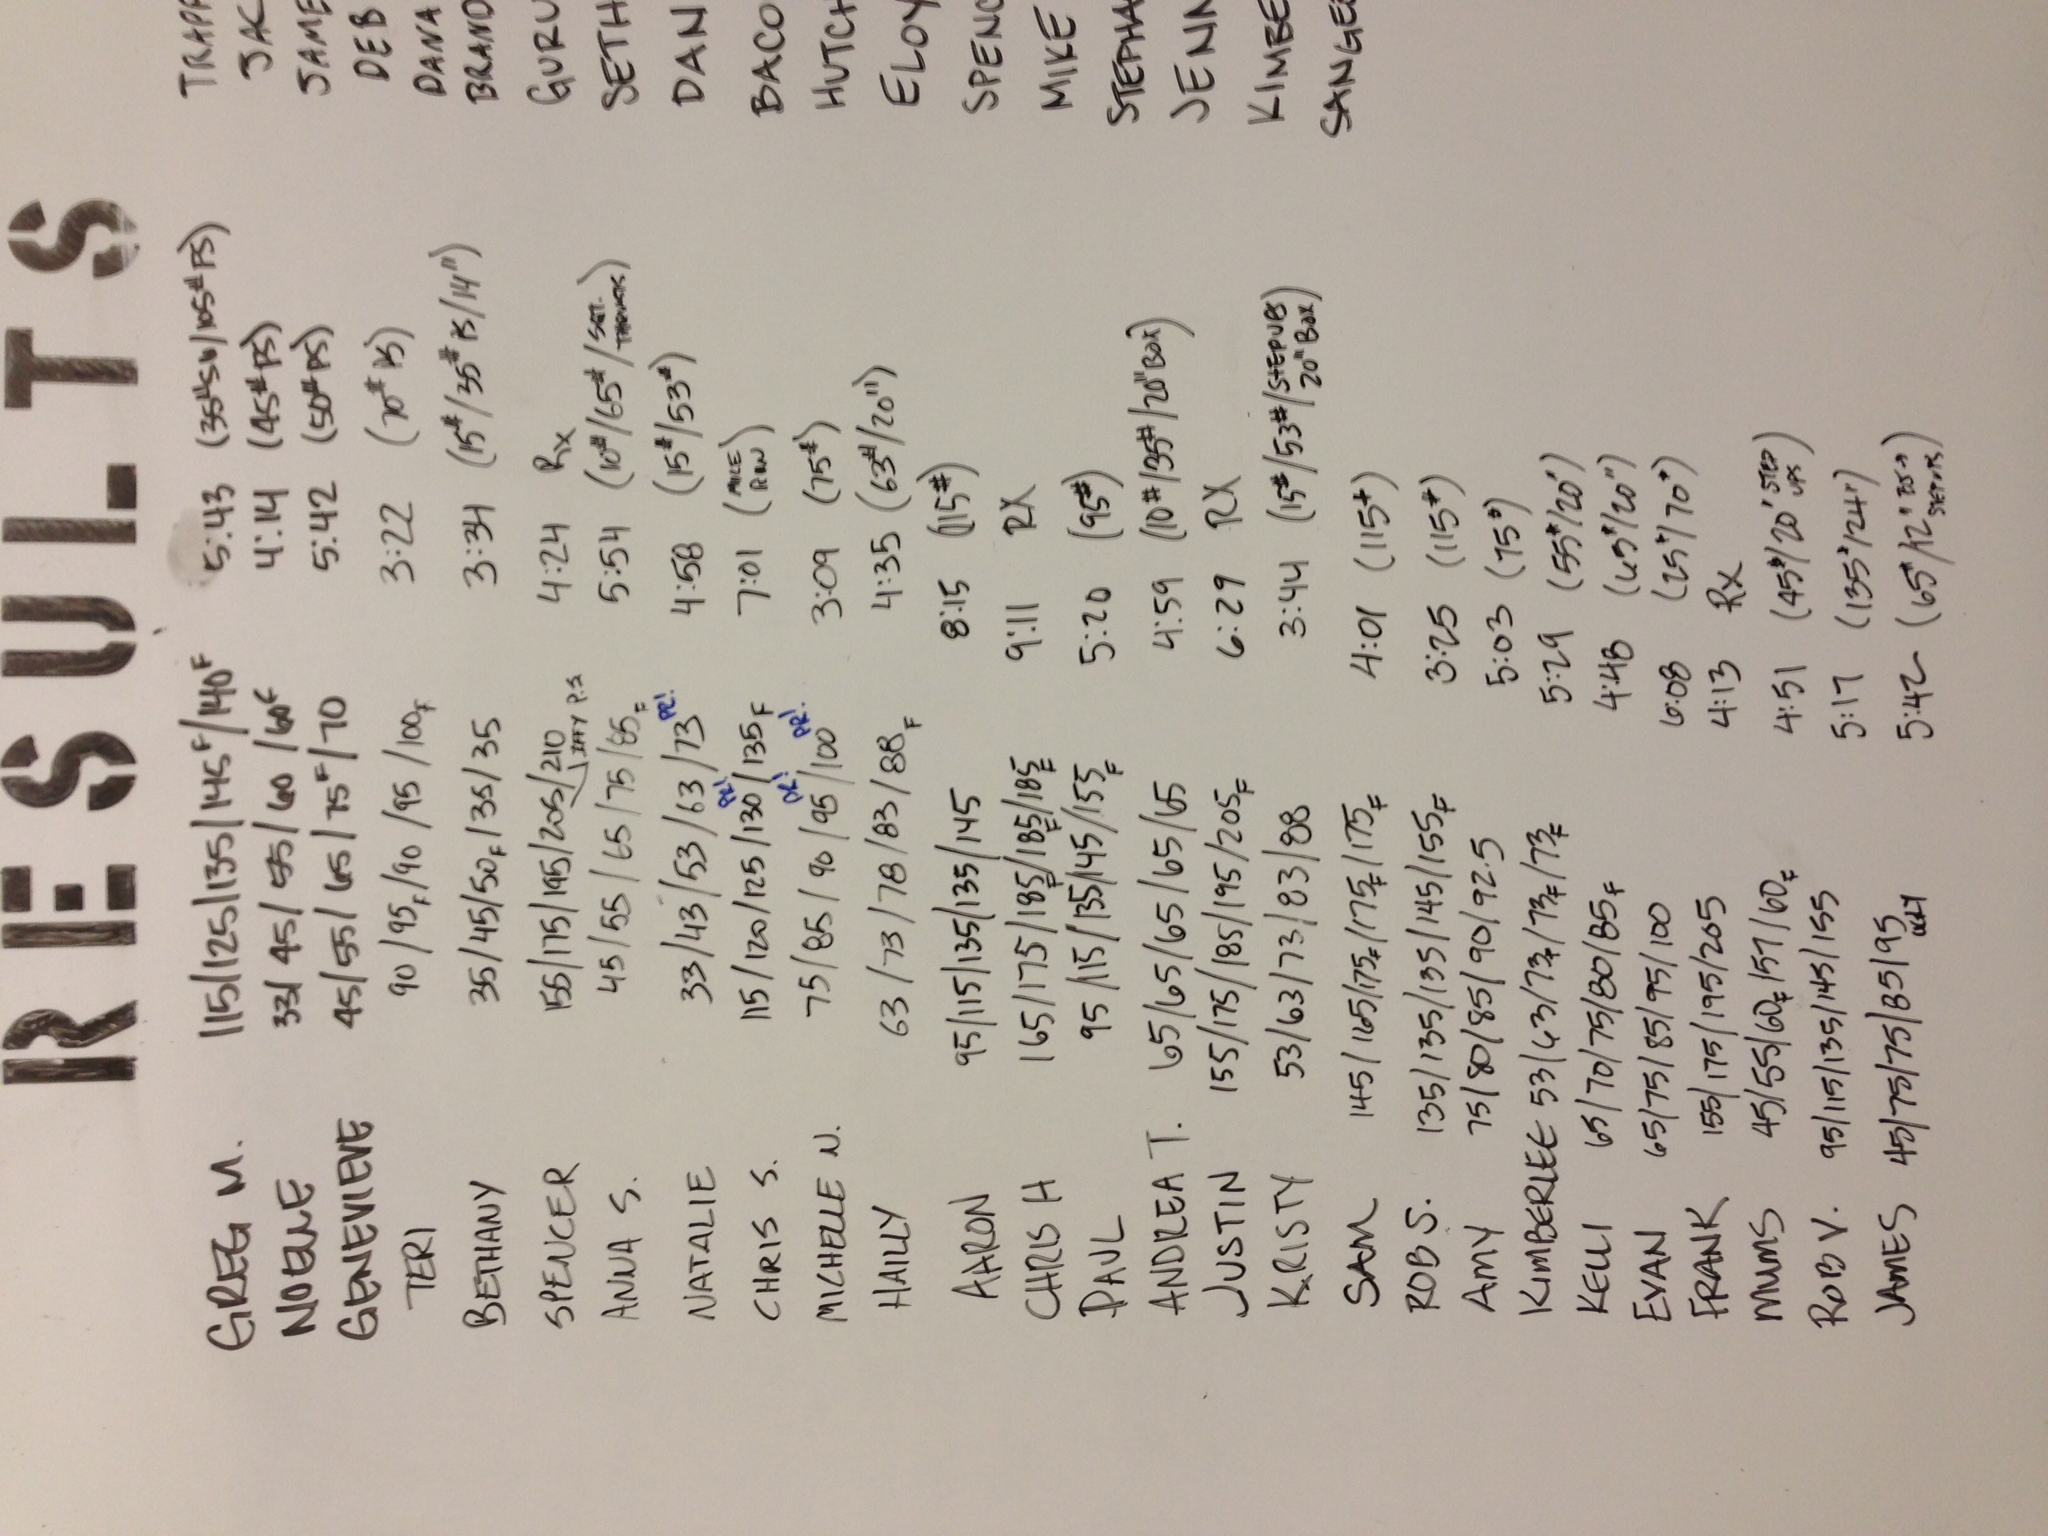 RESULTS
GREG M. 115/125/135/145F/140F 5:43 (35#SN/105#PS)
NOELNE 33/45/55/60/60F 4:14 (45# PS)
GENEVIEVE 45/55/65/75F/70 5:42 (50# PS)
TERI 90/95F/90/95/100F 3:22 (70# PS)
BETHANY 35/45/50F/35/35 3:34 (15#/35# PS/14")
SPENCER 155/175/195/205/210 4:24 Rx
IFFY P.S
ANNA S. 45/55/65/75/85F 5:54 (10#/65#/
NATALIE 33/43/53/63/73 PR! 4:58 (15#/53#)
CHRIS S. 115/120/125/130/135F PR! 7:01 (MILE RUN)
MICHELLE N. 75/85/90/95/100 PR! PR! 3:09 (75#)
HAILLY 63/73/78/83/88F 4:35 (63#/20")
AARON 95/115/135/135/145 8:15 (115#)
CHRIS H 165/175/185F/185F/185F 9:11 RX
PAUL 95/115/135/145/155F 5:20 (95#)
ANDREA T. 65/65/65/65/65 4:59 (10#/35#/20" BOX)
JUSTIN 155/175/185/195/205F 6:29 RX
KRISTY 53/63/73/83/88 3:44 (15#/53#/STEPUPS 20" BOX)
SAM 145/165/175F/175F/175F 4:01 (115#)
ROB S. 135/135/135/145/155F 3:25 (115#)
AMY 75/80/85/90/92.5 5:03 (75#)
KIMBERLEE 53/63/73F/73F/73F 5:29 (55#/20")
KELLI 65/70/75/80/85F 4:48 (65#/20")
EVAN 65/75/85/95/100 6:08 (25#/70#)
FRANK 155/175/195/205 4:13 Rx
MUMS 45/55/60F/57/60F 4:51 (45#/20" STEP UPS)
ROB V. 95/115/135/145/155 5:17 (135#/24")
JAMES 45/75/75/85/95 5:42 (65#/12"
TRAPP
JAC
JAME
DEB
DANA
BRAND
GURU
SETH
DAN
BACO
HUTCH
ELOY
SPENC
MIKE
STEPHA
JENN
KIMBE
SANGE